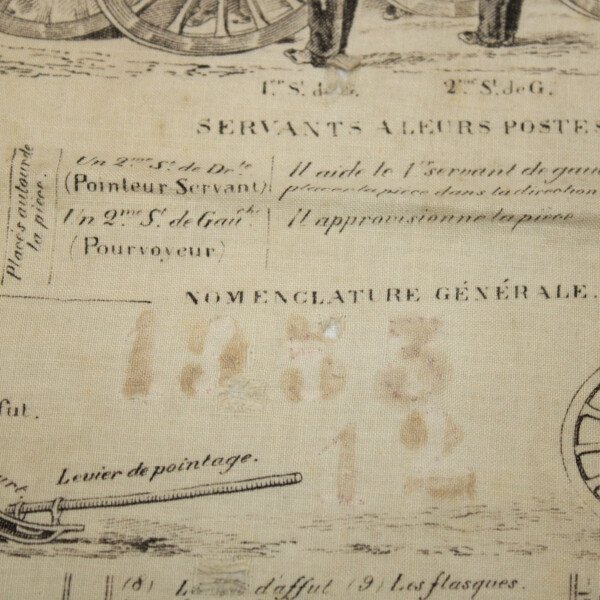 1er St. de G. 2me St. de G.
SERVANTS A LEURS POSTES
Placés autour de
la pièce.
Un 2me St. de Dte
(Pointeur Servant)
Il aide le 1er servant de gau
placer la pièce dans la direction
Un 2me St. de Gauche.
(Pourvoyeur)
Il approvisionne la pièce
NOMENCLATURE GÉNÉRALE.
fut.
Levier de pointage.
(8) d'affut (9) Les flasques.